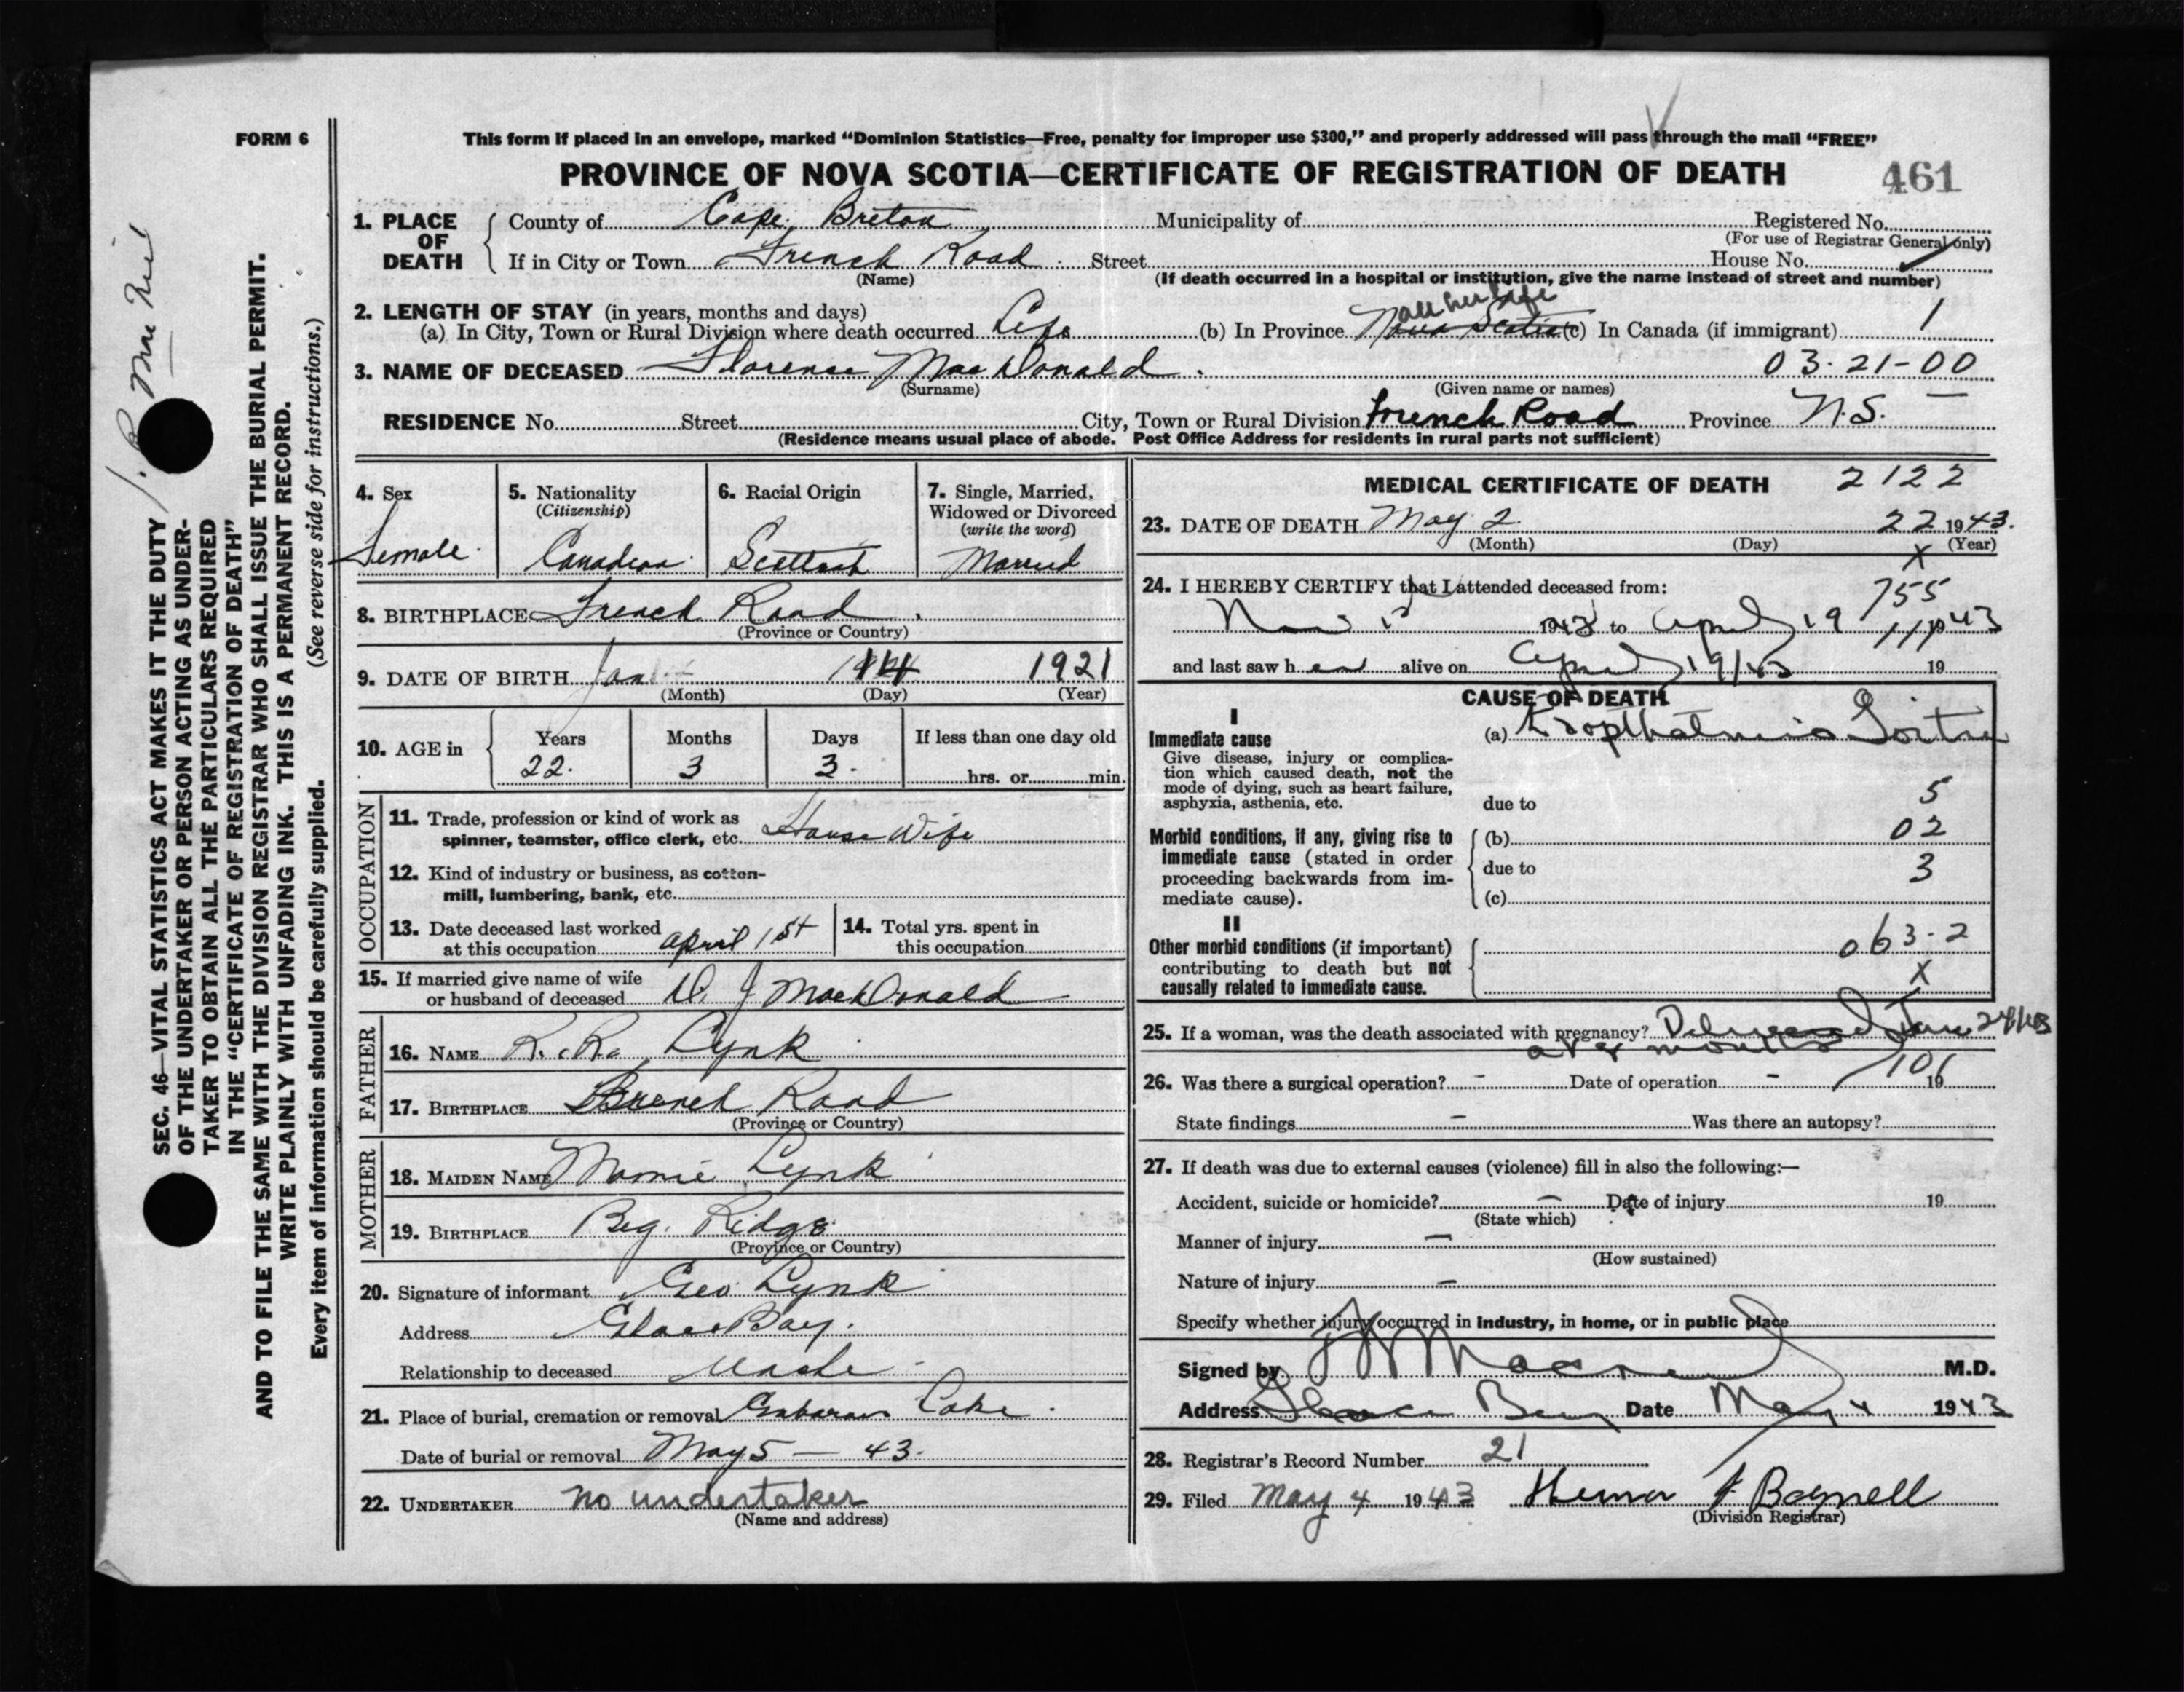 FORM 6
This form if placed in an envelope, marked “Dominion Statistics—Free, penalty for improper use $300,” and properly addressed will pass through the mail “FREE”
PROVINCE OF NOVA SCOTIA—CERTIFICATE OF REGISTRATION OF DEATH
461
1. PLACE OF DEATH
County of Cape Breton Municipality of Registered No.
(For use of Registrar General only)
If in City or Town French Road Street House No.
(Name)
(If death occurred in a hospital or institution, give the name instead of street and number)
2. LENGTH OF STAY (in years, months and days)
all her life
(a) In City, Town or Rural Division where death occurred Life (b) In Province Nova Scotia (c) In Canada (if immigrant) 1
3. NAME OF DECEASED Florence MacDonald 03-21-00
(Surname) (Given name or names)
RESIDENCE No. Street City, Town or Rural Division French Road Province N.S. —
(Residence means usual place of abode. Post Office Address for residents in rural parts not sufficient)
4. Sex
Female
5. Nationality
(Citizenship)
Canadian
6. Racial Origin
Scottish
7. Single, Married, Widowed or Divorced
(write the word)
Married
8. BIRTHPLACE French Road
(Province or Country)
9. DATE OF BIRTH Jan 1921
(Month) (Day) (Year)
10. AGE in
Years Months Days If less than one day old
22 3 3 hrs. or min.
OCCUPATION
11. Trade, profession or kind of work as spinner, teamster, office clerk, etc. House Wife
12. Kind of industry or business, as cotton-mill, lumbering, bank, etc.
13. Date deceased last worked at this occupation april 1st
14. Total yrs. spent in this occupation
15. If married give name of wife or husband of deceased D. J MacDonald
FATHER
16. NAME Lynk
17. BIRTHPLACE French Road
(Province or Country)
MOTHER
18. MAIDEN NAME Mamie Lynk
19. BIRTHPLACE Big. Ridge
(Province or Country)
20. Signature of informant Geo Lynk
Address Glace Bay.
Relationship to deceased Uncle
21. Place of burial, cremation or removal Gabarus Lake
Date of burial or removal May 5 — 43.
22. UNDERTAKER no undertaker
(Name and address)
MEDICAL CERTIFICATE OF DEATH 2122
23. DATE OF DEATH May 2 22 1943.
(Month) (Day) (Year)
X
24. I HEREBY CERTIFY that I attended deceased from:
755
to April 19 1943
111
and last saw her alive on April 19/43 19
CAUSE OF DEATH
I
Immediate cause
Give disease, injury or complication which caused death, not the mode of dying, such as heart failure, asphyxia, asthenia, etc.
(a) Exopthalmic Goitre
due to 5
Morbid conditions, if any, giving rise to immediate cause (stated in order proceeding backwards from immediate cause).
(b) 02
due to 3
(c)
II
Other morbid conditions (if important) contributing to death but not causally related to immediate cause.
063-2
X
25. If a woman, was the death associated with pregnancy? Delivered Jan 24/43
months
26. Was there a surgical operation? - Date of operation - 19
101
State findings — Was there an autopsy?
27. If death was due to external causes (violence) fill in also the following:—
Accident, suicide or homicide? — Date of injury 19
(State which)
Manner of injury —
(How sustained)
Nature of injury —
Specify whether injury occurred in industry, in home, or in public place
Signed by M.D.
Address Glace Bay Date May 4 1943
28. Registrar's Record Number 21
29. Filed May 4 1943 Bagnell
(Division Registrar)
SEC. 46—VITAL STATISTICS ACT MAKES IT THE DUTY
OF THE UNDERTAKER OR PERSON ACTING AS UNDER-
TAKER TO OBTAIN ALL THE PARTICULARS REQUIRED
IN THE “CERTIFICATE OF REGISTRATION OF DEATH”
AND TO FILE THE SAME WITH THE DIVISION REGISTRAR WHO SHALL ISSUE THE BURIAL PERMIT.
WRITE PLAINLY WITH UNFADING INK. THIS IS A PERMANENT RECORD.
Every item of information should be carefully supplied. (See reverse side for instructions.)